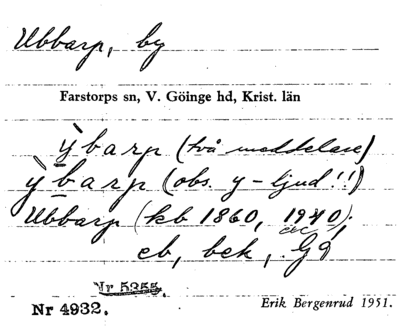 Ubbarp, by
Farstorps sn, V. Göinge hd, Krist. län
ỳbarp (två meddelare)
ỳbarp (obs. y-ljud!!)
Ubbarp (kb 1860, 1940),
eb, bek, Gé
Nr 5355.
Nr 4932.
Erik Bergenrud 1951.